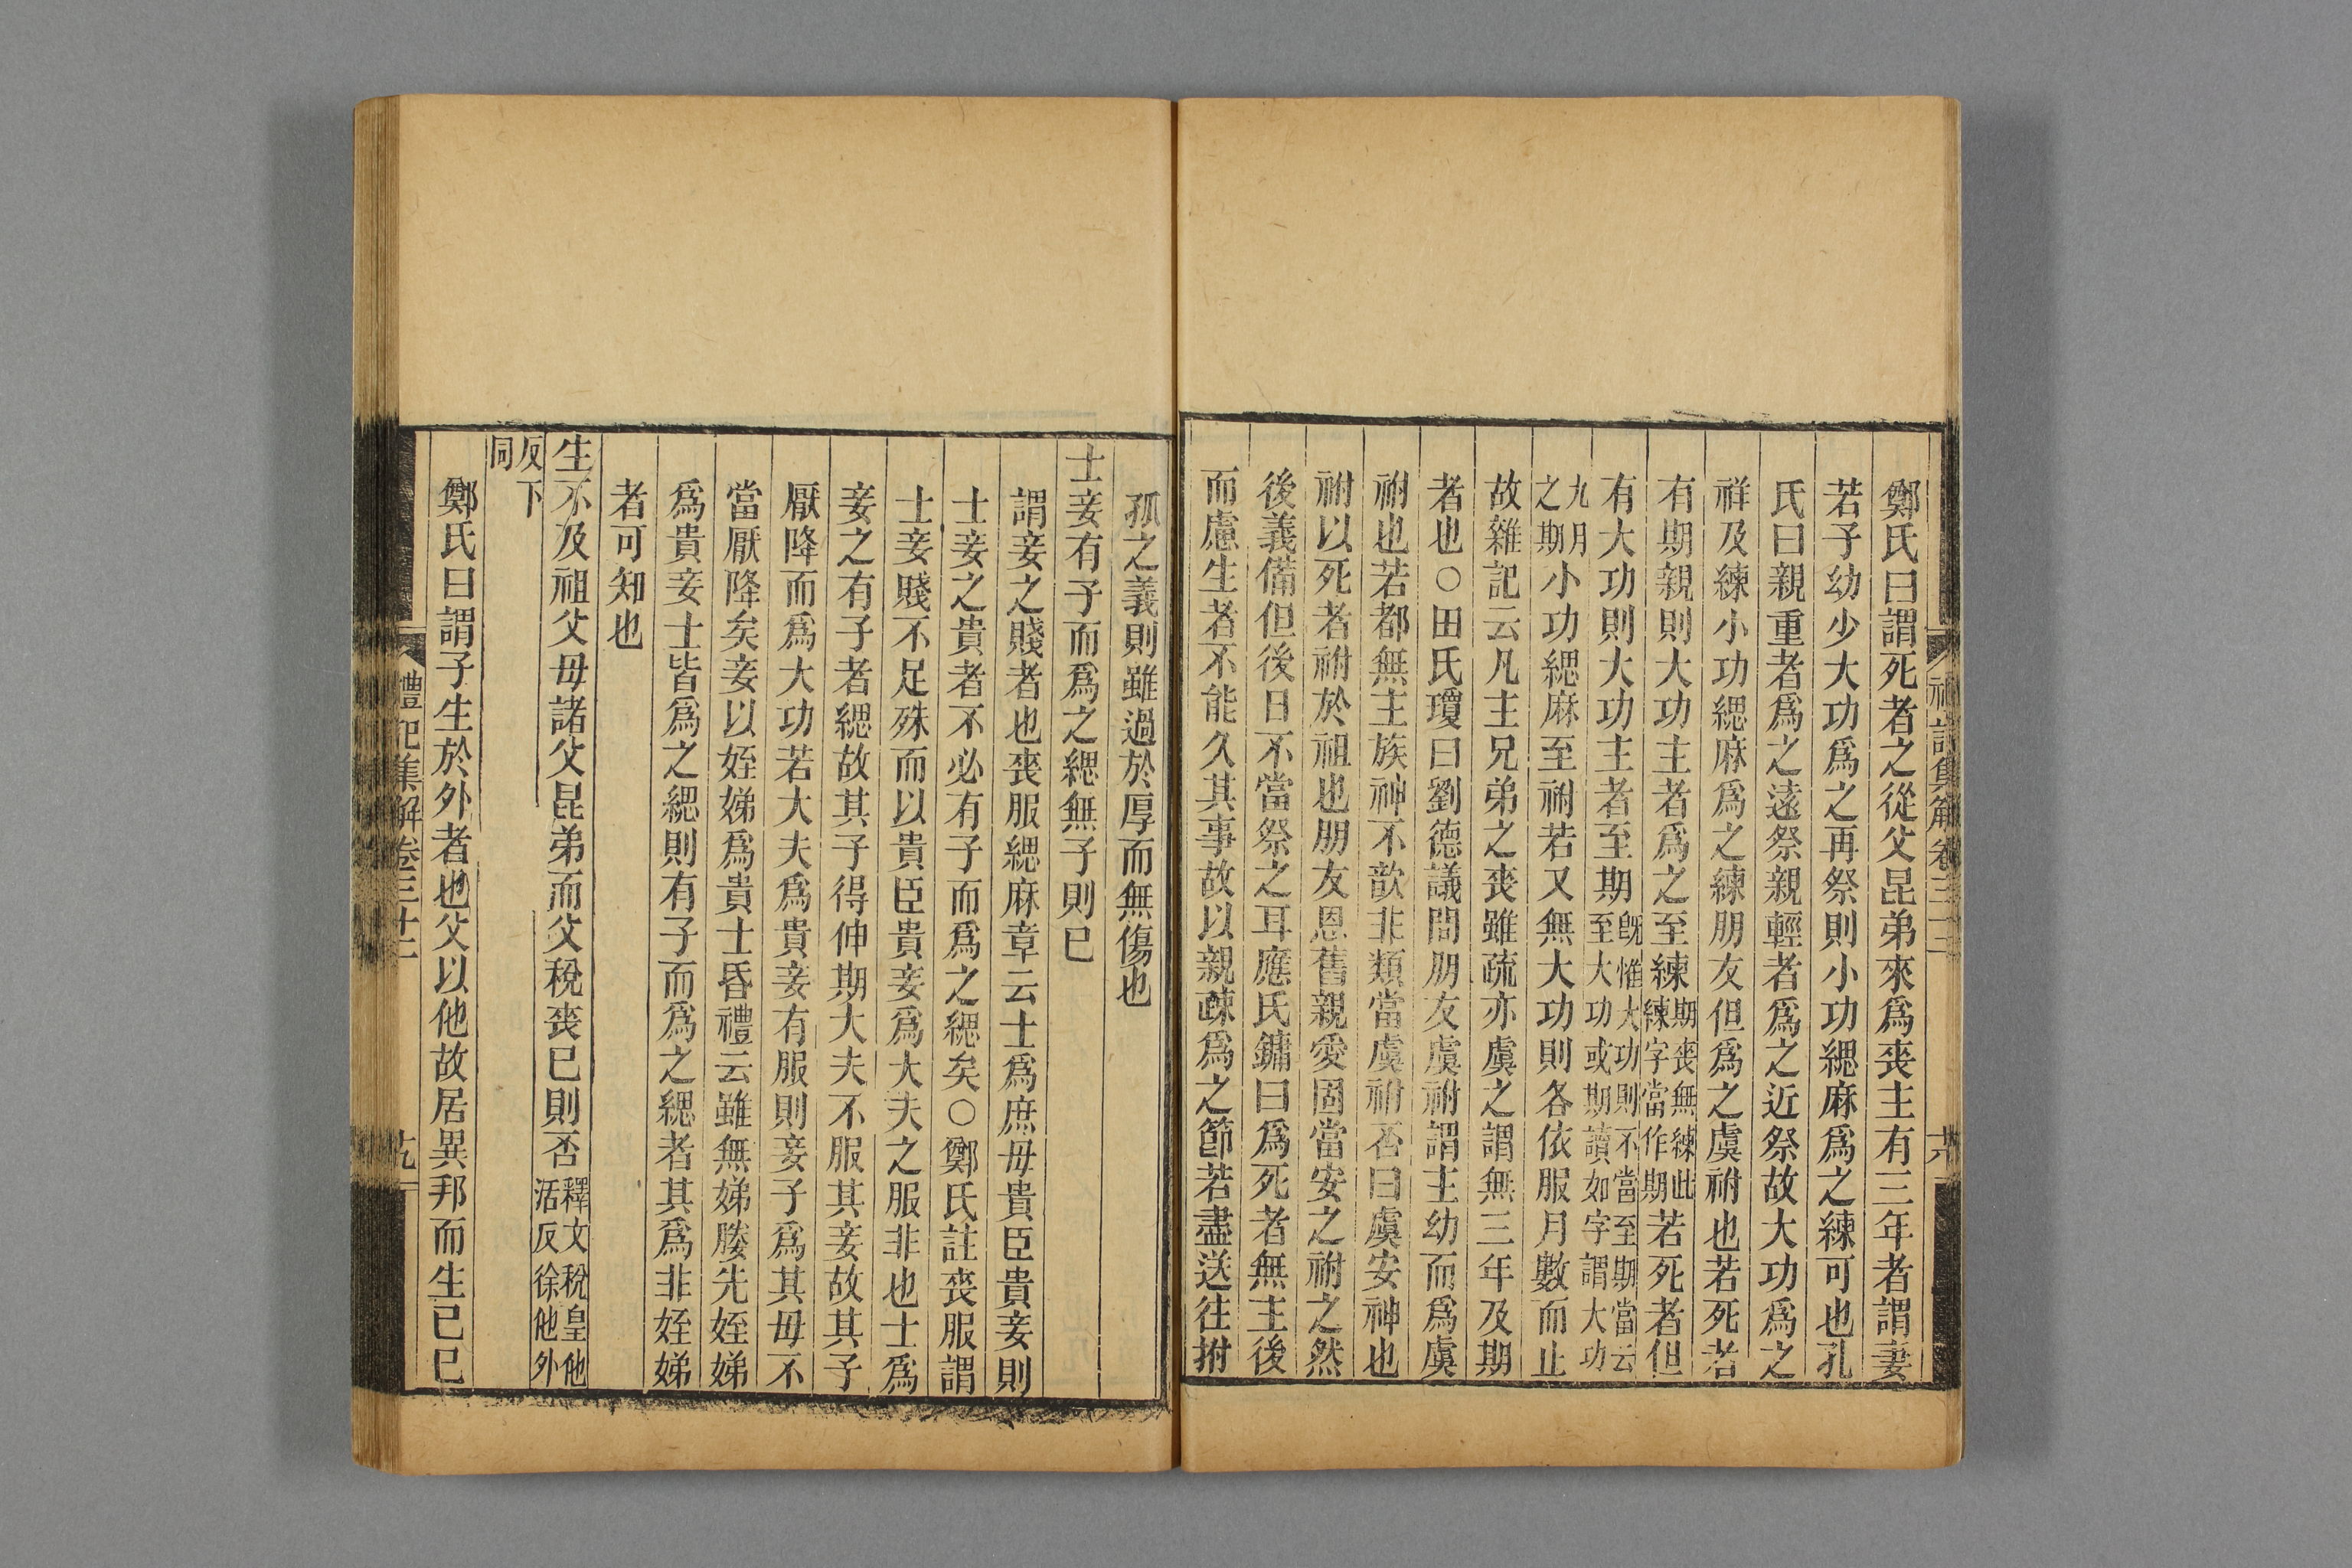 鄭氏曰謂死者之從父昆弟來爲喪主有三年者謂妻
若子幼少大功爲之再祭則小功緦麻爲之練可也孔
氏曰親重者爲之遠祭親輕者爲之近祭故大功爲之
祥及練小功緦麻爲之練朋友但爲之虞祔也若死者
有期親則大功主者爲之至練期喪無練此練字當作期若死者但
有大功則大功主者至期旣惟大功則不當至期當云至大功或期讀如字謂大功
九月之期小功緦麻至祔若又無大功則各依服月數而止
故雜記云凡主兄弟之喪雖疏亦虞之謂無三年及期
者也○田氏瓊曰劉德議問朋友虞祔謂主幼而爲虞
祔也若都無主族神不歆非類當虞祔否曰虞安神也
祔以死者祔於祖也朋友恩舊親愛固當安之祔之然
後義備但後日不當祭之耳應氏鏞曰爲死者無主後
而慮生者不能久其事故以親疎爲之節若盡送往拊
孤之義則雖過於厚而無傷也
士妾有子而爲之緦無子則已
謂妾之賤者也喪服緦麻章云士爲庶母貴臣貴妾則
士妾之貴者不必有子而爲之緦矣○鄭氏註喪服謂
士妾賤不足殊而以貴臣貴妾爲大夫之服非也士爲
妾之有子者緦故其子得伸期大夫不服其妾故其子
厭降而爲大功若大夫爲貴妾有服則妾子爲其母不
當厭降矣妾以姪娣爲貴士昏禮云雖無娣媵先姪娣
爲貴妾士皆爲之緦則有子而爲之緦者其爲非姪娣
者可知也
生不及祖父母諸父昆弟而父稅喪已則否釋文稅皇他活反徐他外
反下同
鄭氏曰謂子生於外者也父以他故居異邦而生已已
禮記集解卷三十二